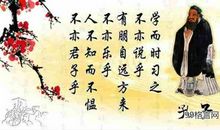 学而时习之
不亦说乎
有朋自远方来
不亦乐乎
人不知而不愠
不亦君子乎
孔子